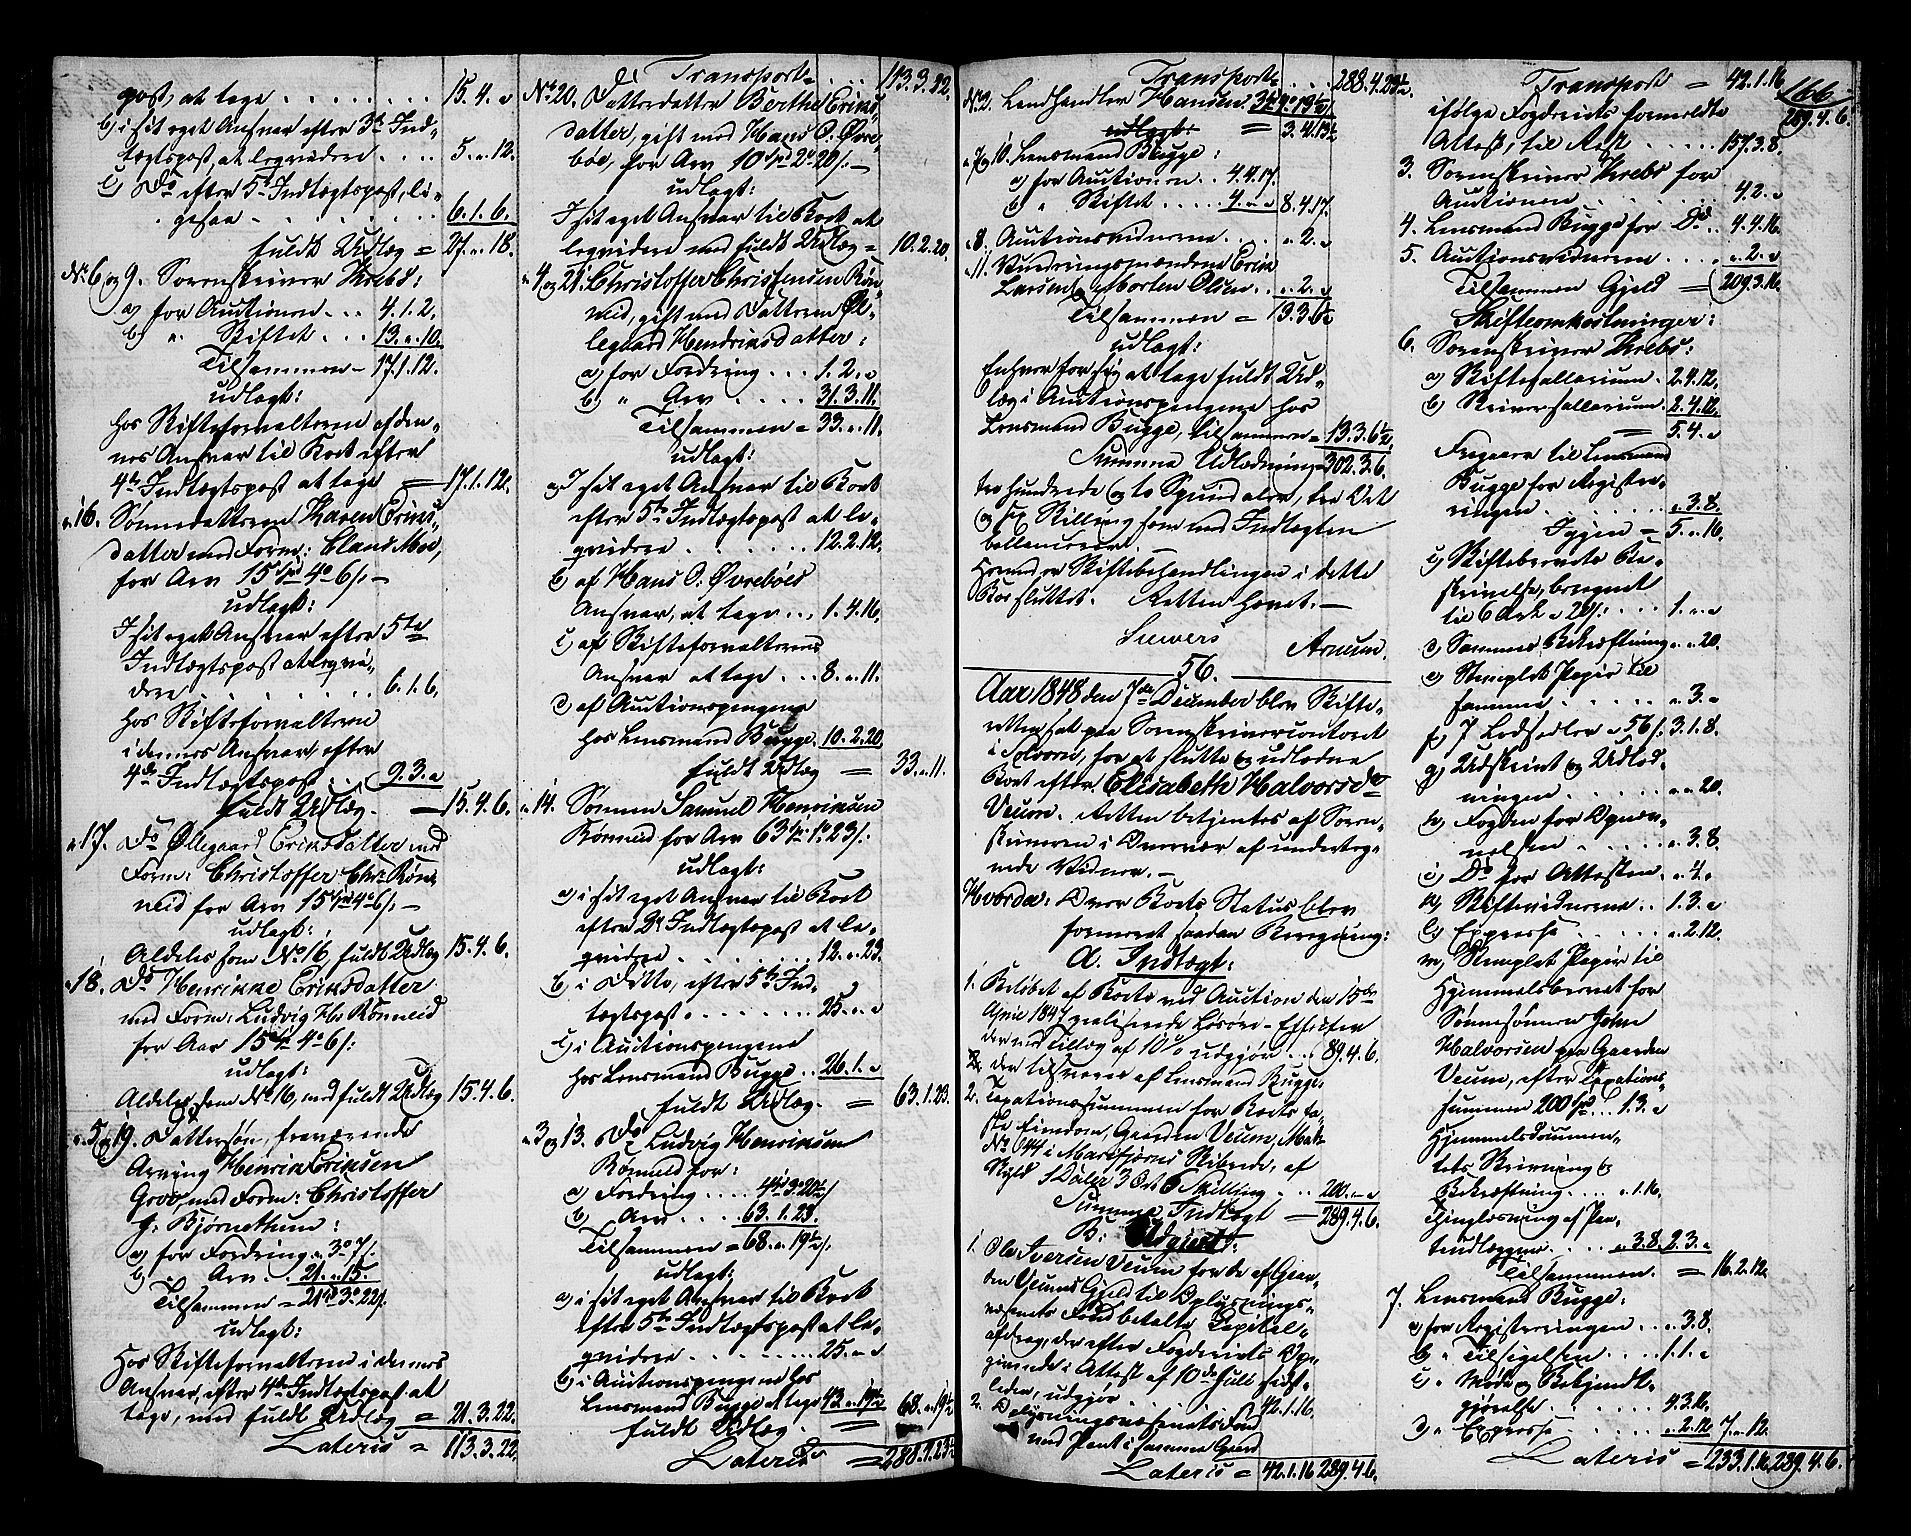 post, at tage . . . . . . . 15. 4. "
b) i sit eget Ansvar efter 3de Ind-
tægtspost, at legvidere . . . . 5. " 12.
c) Do efter 5te Indtægtspost, li-
gesaa . . . . . . . . 6. 1. 6.
fuldt Udlæg = 27. " 18.
No 6 og 9. Sorenskriver Krebs:
a) for Auctionen . . . 4. 1. 2.
b) " Skiftet . . . 13. " 10.
Tilsammen = 17. 1. 12.
udlagt:
hos Skifteforvalteren af den-
nes Ansvar til Boet efter
4de Indtægtspost at tage = 17. 1. 12.
" 16. Sønnedatteren Karen Eriks-
datter med Form: Claus Moe,
for Arv 15 Spd 4 o 6 s. —
udlagt:
I sit eget Ansvar efter 5te
Indtægtspost at legvi-
dere . . . . . . . 6. 1. 6.
hos Skifteforvalteren
i dennes Ansvar efter
4de Indtægtspost . . 9. 3. "
fuldt Udlæg. — 15. 4. 6.
" 17. Do Øllegaard Eriksdatter med
Form: Christoffer Chr. Røn-
neid for Arv 15 Spd 4 o 6 s. —
udlagt:
Aldeles som No 16, fuldt Udlæg 15. 4. 6.
" 18. Do Henrikke Eriksdatter
med Form: Ludvig Hs Rønneid
for Arv 15 Spd 4 o 6 s:
udlagt:
Aldeles som No 16, med fuldt Udlæg 15. 4. 6.
" 5 og 19. Dattersøn, fraværende
Arving Henrik Eriksen
Groe, med Form: Christoffer
J. Bjørnethun:
a) for Fordring " 3 o 7 s.
b) " Arv . . 21. " 15.
Tilsammen = 21 Spd 3 o 22 s.
udlagt:
Hos Skifteforvalteren i dennes
Ansvar, efter 4de Indtægtspost at
tage, med fuldt Udlæg = 21. 3. 22.
Lateris = 113. 3. 22.
Transport = . . . 113. 3. 22.
No 20. Do Datterdatter Berthe Eriks-
datter, gift med Hans O. Øvre-
bøe, for Arv 10 Spd 2 o 20 s. —
udlagt:
I sit eget Ansvar til Boet at
legvidere med fuldt Udlæg = 10. 2. 20.
" 4 og 21. Christoffer Christensen Røn-
neid, gift med Datteren Øl-
legaard Hendriksdatter:
a) for Fordring . . . 1. 2. "
b) " Arv . . . . 31. 3. 11.
Tilsammen = 33. " 11.
udlagt:
a) I sit eget Ansvar til Boet
efter 5te Indtægtspost at le-
gvidere . . . . . . . 12. 2. 12.
b) af Hans O. Øvrebøes
Ansvar, at tage . . . 1. 4. 16.
c) af Skifteforvalterens
Ansvar at tage . . . 8. " 11.
d) af Auctionspengene
hos Lensmand Bugge. 10. 2. 20
fuldt Udlæg = 33. " 11.
" 14. Sønnen Samuel Henriksen
Rønneid for Arv 63 Spd 1 o 23 s:
udlagt:
a) i sit eget Ansvar til Boet
efter 2de Indtægtspost at le-
gvidere . . . . . . . 12. " 23.
b) i Ditto, efter 5te Ind-
tægtspost . . . . . . . 25. " "
c) i Auctionspengene
hos Lensmand Bugge . . 26. 1. "
fuldt Udlæg. = 63. 1. 23.
" 3 og 13. Do Ludvig Henriksen
Rønneid for:
a) Fordring . . . . 4 Spd 3 o 20½ s
b) Arv . . . . 63. 1. 23.
Tilsammen = 68. " 19½ s.
udlagt:
a) i sit eget Ansvar til Boet
efter 5te Indtægtspost at le-
gvidere . . . . . . . 25. " "
b) i Auctionspengene hos
Lensmand Bugge at tage 43. " 19½ 68. " 19½
fuldt Udlæg. =
Lateris = 288. 4. 23½
Transport = . . . 288. 4. 23½.
No 2. Landhandler Hansen: 3 Spd 4 o 13½ s
udlagt: = 3. 4. 13½
" 7 og 10. Lensmand Bugge:
a) for Auctionen . . 4. 4. 17.
b) " Skiftet . . . . 4. " " 8. 4. 17.
" 8. Auctionsvidnerne . . . . " 2. "
" 11. Vurderingsmændene Erik
Larsen og Morten Olsen . . " 2. "
Tilsammen = 13. 3. 6½
udlagt:
Enhver for sig at tage fuldt Ud-
læg i Auctionspengene hos
Lensmand Bugge, tilsammen = 13. 3. 6½.
Summa Udlodning = 302. 3. 6.
tre hundrede og to Speciedaler, tre Ort
og sex Skilling som med Indtægten
ballancerer.
Hermed er Skiftebehandlingen i dette
Bo sluttet. Retten hævet. —
Siewers Arneson.
56.
Aar 1848 den 7de December blev Skifte-
retten sat paa Sorenskrivercontoret
i Solvorn, for at slutte og udlodne
Boet efter Elisabeth Halvorsdr
Veum. Retten betjentes af Soren-
skriveren i Overvær af underteg-
nede Vidner. —
Hvorda: Over Boets Status blev
formeret saadan Beregning:
A. Indtægt:
1. Beløbet af Boets ved Auction den 15de
April 1847 realiserede Løsøre-Effecter
der med Tillæg af 10 % udgjør . . . 89. 4. 6.
der tilsvares af Lensmand Bugge.
2. Taxationssummen for Boets fa-
ste Eiendom, Gaarden Veum, Matr.
No 144 i Marifjærens Skibrede, af
Skyld 1 Daler 3 Ort 6 Skilling . . . 200. " "
Summa Indtægt = 289. 4. 6.
B: Udgivt:
1. Ole Iversen Veum for de af Gaar-
den Veums Gjeld til Oplysnings-
væsenets Fond betalte Capital-
afdrag, der efter Fogderiets Op-
givende i Attest af 10de Juli sidst-
leden, udgjør . . . . . . . 42. 1. 16.
2. Oplysningsvæsenets Fond
med Pant i samme Gaard
Lateris = 42. 1. 16 289. 4. 6.
Transport = 42. 1. 16 166.
289. 4. 6.
ifølge Fogderiets formeldte
Attest, til Rest . . . . . 157. 3. 8.
3. Sorenskriver Krebs for
Auctionen . . . . . . . . 4. 2. "
4. Lensmand Bugge for Do . . 4. 4. 16.
5. Auctionsvidnerne . . . . " 2. "
Tilsammen Gjeld = 209. 3. 16.
Skifteomkostninger:
6. Sorenskriver Krebs:
a) Skiftesallarium . 2. 4. 12.
b) Skriversallarium . 2. 4. 12.
= 5. 4. "
Fragaar til Lensmand
Bugge for Registre-
ringen . . . . . . . " 3. 8.
Igjen = 5. " 16.
c) Skiftebrevets Be-
skrivelse, beregnet
til 6 Ark a 20 s. . . . 1. " "
d) Sammes Bekræftning " " 20.
e) Stemplet Papir til
samme . . . . . . " 3. "
f) 7 Lodsedler a 56 s. 3. 1. 8.
g) Udskrivt og Udlod-
ningen . . . . . . " " 20.
h) Fogden for Opnæv-
nelsen . . . . . . " 3. 8.
i) Do for Attesten . . " 4. "
k) Skiftevidnerne . . 1. 3. "
l) Expresse . . . . . " 2. 12.
m) Stemplet Papir til
Hjemmelsbrevet for
Sønnesønnen John
Halvorsen paa Gaarden
Veum, efter Taxations-
summen 200 Spd . . 1. 3. "
Hjemmelsdocumen-
tets Skrivning og
Bekræftning . . . " 1. 16.
Thinglæsning af Pan-
teudlæggene . . . " 3. 8. 2. 3. "
Tilsammen = 16. 2. 12.
7. Lensmand Bugge:
a) for Registreringen . . " 3. 8.
b) " Tilsigelsen . . . . 1. 1. "
c) " Møde og Bekjendt-
gjørelse . . . . . . . 4. 3. 16.
d) " Expresse . . . . . . " 2. 12. 7. " 12.
Lateris = 233. 1. 16. 289. 4. 6.